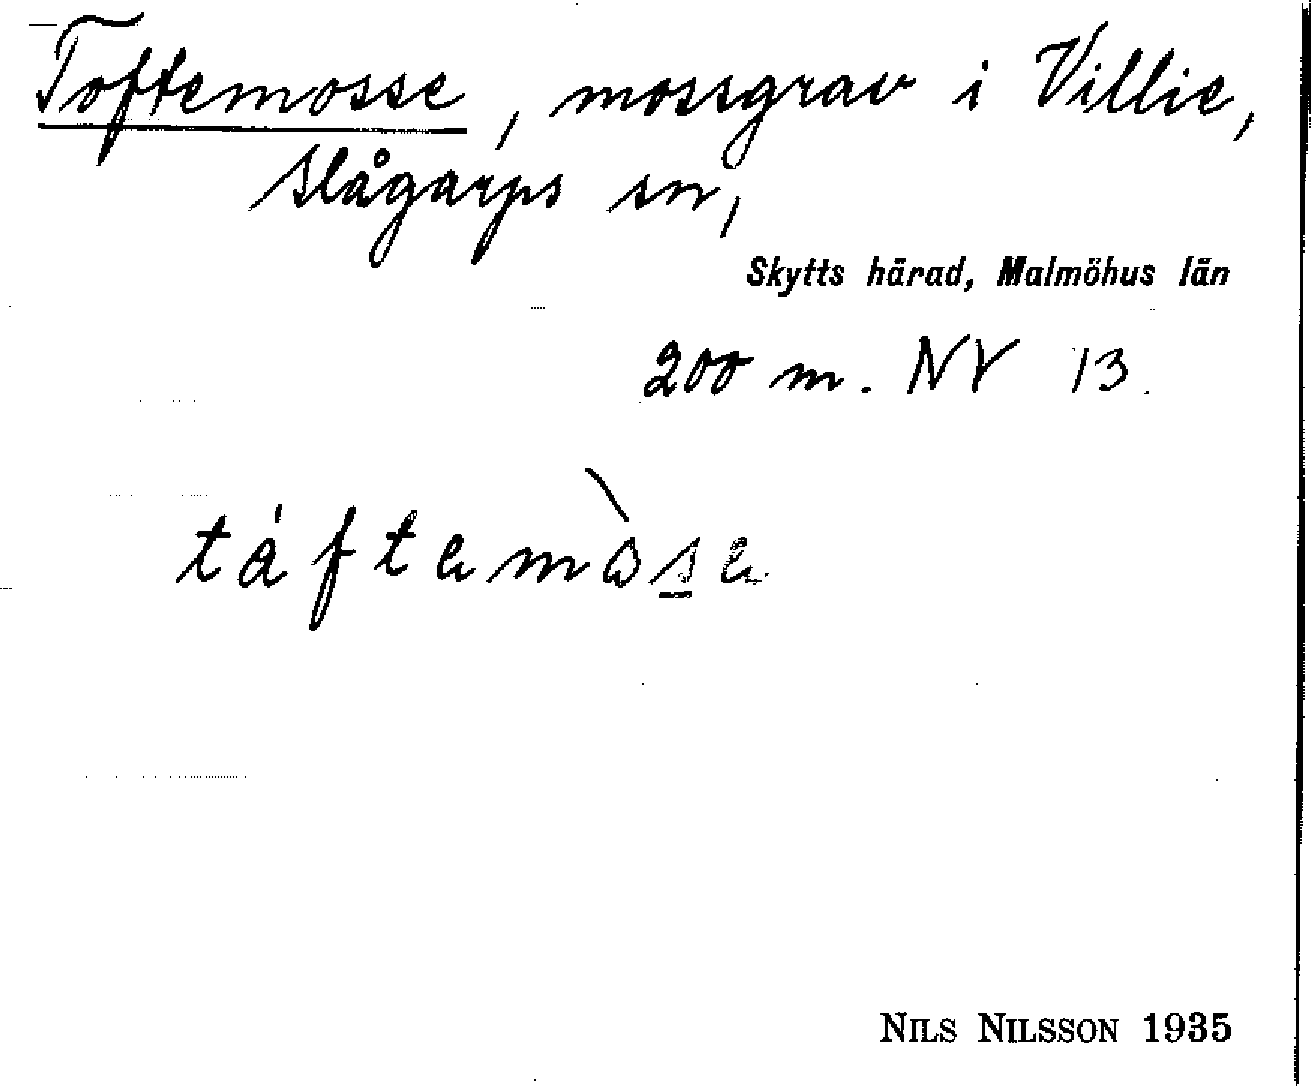 Toftemosse, mossgrav i Villie,
Slågarps sn,
Skytts härad, Malmöhus län
200 m. NV 13.
táftemòse
NILS NILSSON 1935